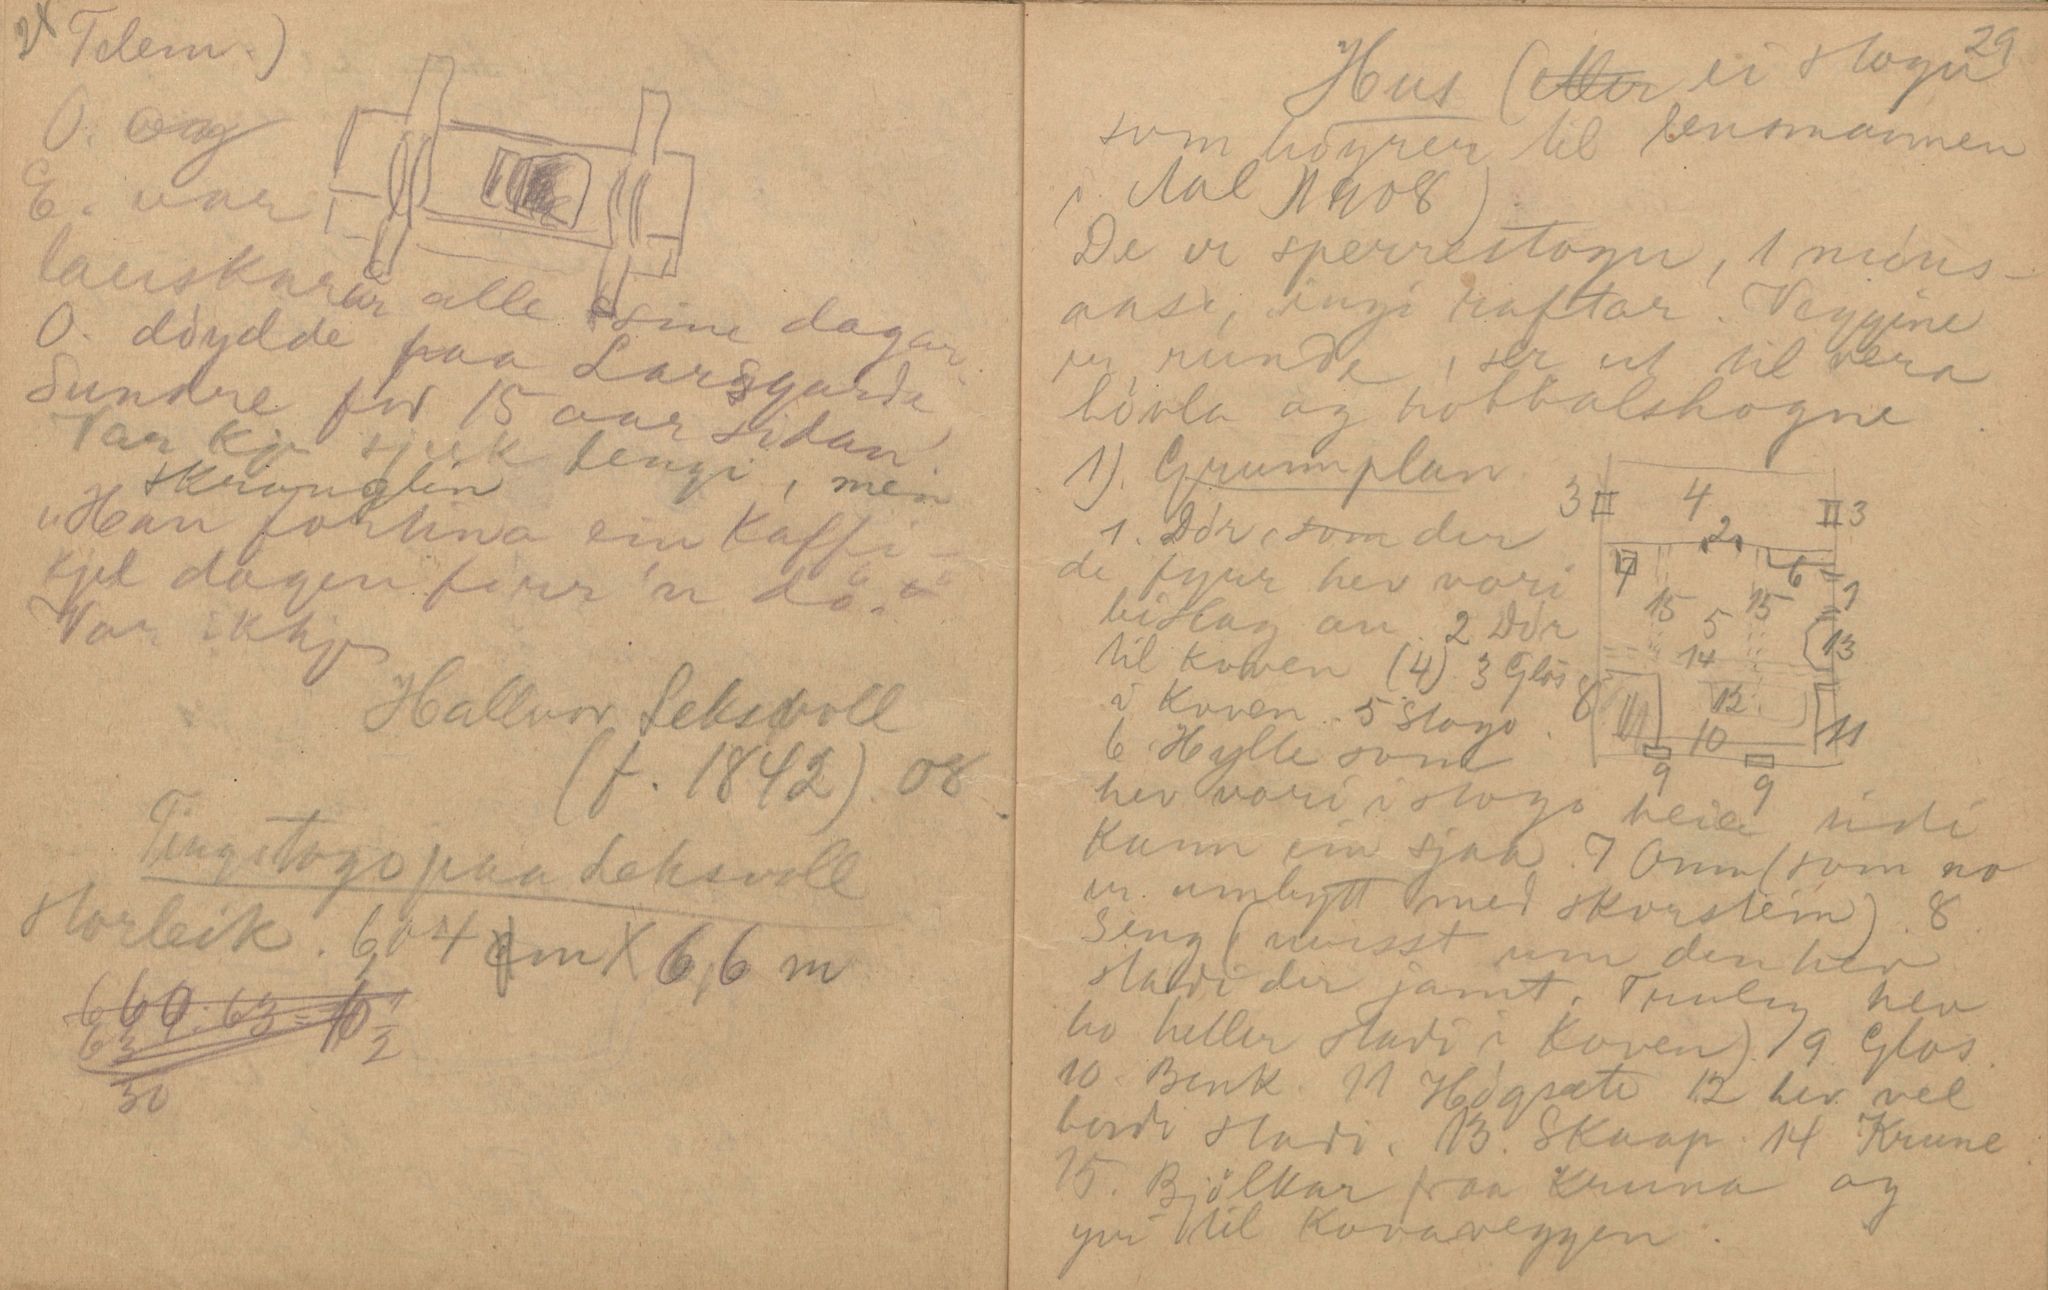 Telem.)
O. og
E. var
lauskarar alle sine dagar.
O. döydde paa Larsgarda
Sundre for 15 aar sidan.
Var kje sjuk lengi, men
skranglin
"Han fortina ein Kaffi-
kjel dagen fyrr 'n dö."
Var ikkje
Hallvor Leksvoll
(f. 1842) 08
Tingstogo paa Leksvoll
storleik. 6,04 m X 6,6 m
660:63 = 10 1/2
63
30
29
Hus (eller ei stogu
som höyrer til lensmannen
i Aal 1908)
De er sperrestogu, 1 möns-
aase, ingi raftar. Veggine
er runde, ser ut til vera
hövla og hobbalshogne.
1). Grunnplan
1. Dör, som der
de fyrr hev vori
bislag an. 2 Dör
til koven (4). 3 Glas
i Koven. 5 Stogo.
6 Hylle som
hev vori i stogo heile tidi
kann ein sjaa. 7 Omn (som no
er umbytt med skorstein). 8
Seng (uvisst um den hev
stadi der jamt. Truleg hev
ho heller stadi i Koven). 9 Glas.
10. Benk. 11 Högsæte 12 hev vel
bordi stadi. 13. Skaap. 14 Krune
15. Bjölkar fraa Kruna og
yvi til Kovaveggen.
3 4 3
2
7 6 1
15 5 15
14 13
8 12
10 11
9 9